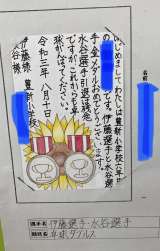 はじめましてわたしは豊新小学校六年
です。伊藤選手と水谷選
手金メダルおめでとうございます。
水谷選手引退は残念
ですが、これからも卓
球がんばってください。
令和三年 八月十日
豊新小学校
伊藤様
水谷様
名前
選手名 伊藤選手・水谷選手
競技名 卓球ダブルス